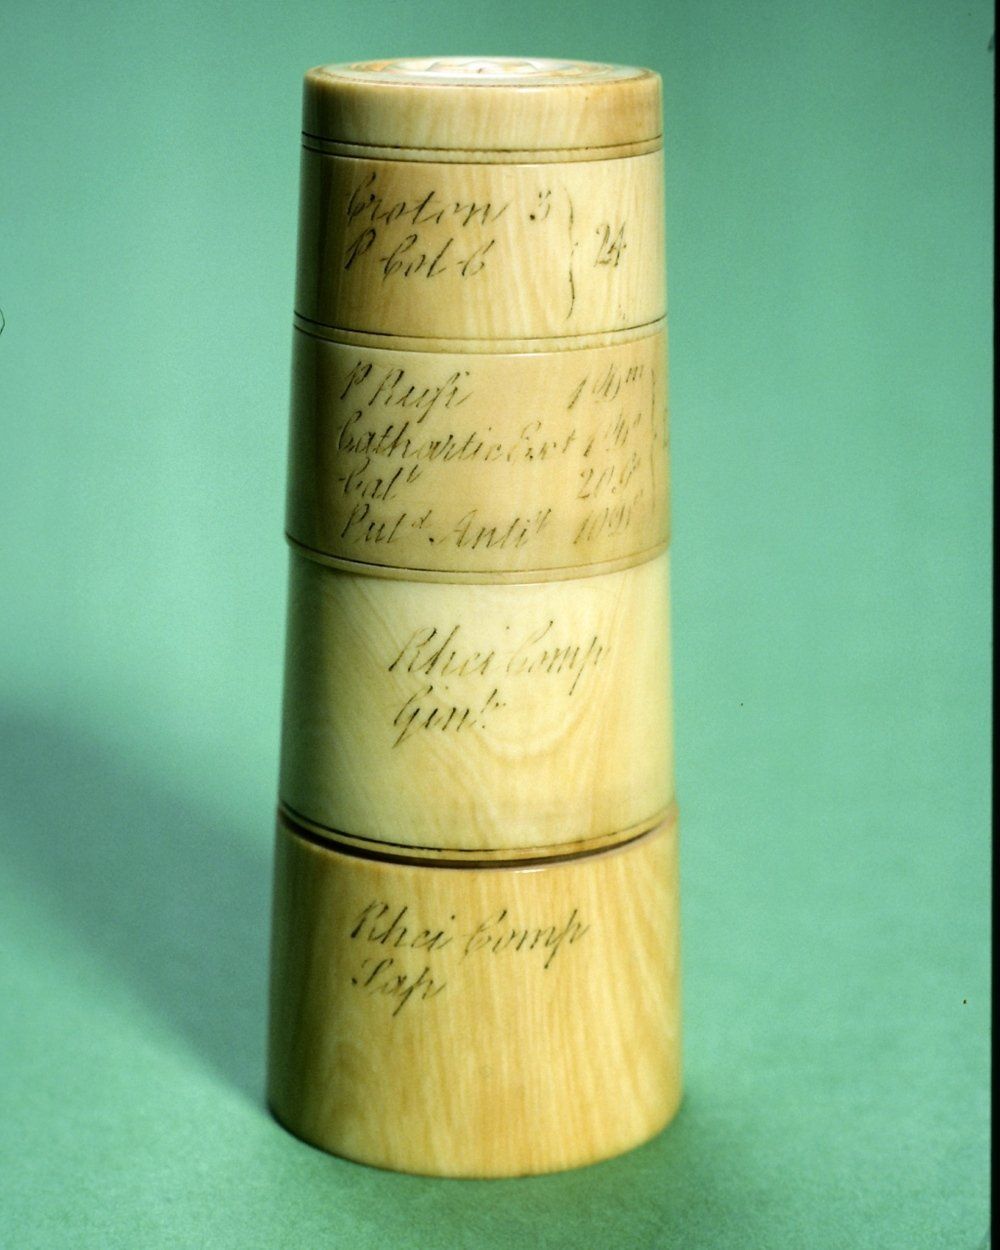 Croton 3
P Col C } 24
P Rufi
Cathartic Ext
Cal
Pul Anti 10
Rhei Comp
Ginb
Rhei Comp
Sap